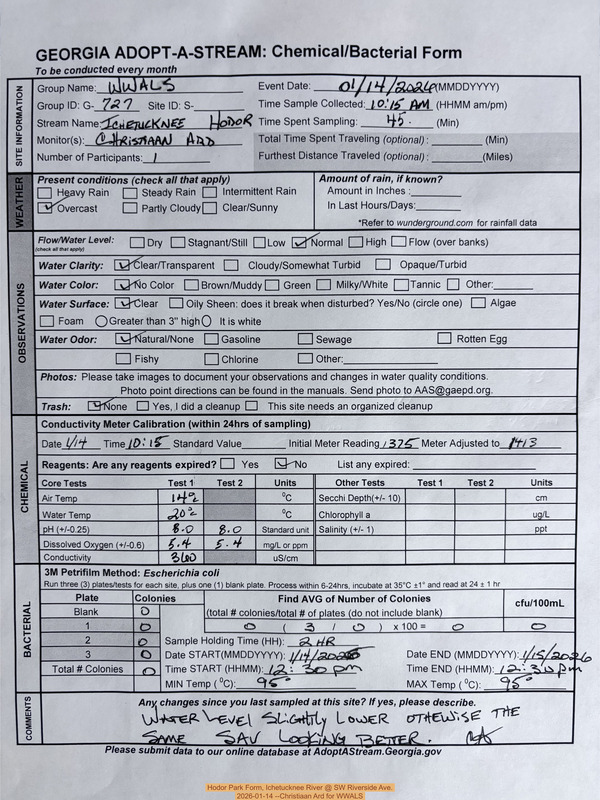 GEORGIA ADOPT-A-STREAM: Chemical/Bacterial Form
To be conducted every month
SITE INFORMATION
Group Name: WWALS Event Date: 01/14/2026 (MMDDYYYY)
Group ID: G- 727 Site ID: S- Time Sample Collected: 10:15 AM (HHMM am/pm)
Stream Name: ICHETUCKNEE HODOR Time Spent Sampling: 45. (Min)
Monitor(s): CHRISTIAAN ARD Total Time Spent Traveling (optional): (Min)
Number of Participants: 1 Furthest Distance Traveled (optional): (Miles)
WEATHER
Present conditions (check all that apply) Amount of rain, if known?
Heavy Rain Steady Rain Intermittent Rain Amount in Inches:
Overcast Partly Cloudy Clear/Sunny In Last Hours/Days:
*Refer to wunderground.com for rainfall data
OBSERVATIONS
Flow/Water Level: Dry Stagnant/Still Low Normal High Flow (over banks)
(check all that apply)
Water Clarity: Clear/Transparent Cloudy/Somewhat Turbid Opaque/Turbid
Water Color: No Color Brown/Muddy Green Milky/White Tannic Other:
Water Surface: Clear Oily Sheen: does it break when disturbed? Yes/No (circle one) Algae
Foam Greater than 3" high It is white
Water Odor: Natural/None Gasoline Sewage Rotten Egg
Fishy Chlorine Other:
Photos: Please take images to document your observations and changes in water quality conditions.
Photo point directions can be found in the manuals. Send photo to AAS@gaepd.org.
Trash: None Yes, I did a cleanup This site needs an organized cleanup
CHEMICAL
Conductivity Meter Calibration (within 24hrs of sampling)
Date 1/14 Time 10:15 Standard Value Initial Meter Reading 1375 Meter Adjusted to 1413
Reagents: Are any reagents expired? Yes No List any expired:
Core Tests Test 1 Test 2 Units Other Tests Test 1 Test 2 Units
Air Temp 14° °C Secchi Depth(+/- 10) cm
Water Temp 20° °C Chlorophyll a ug/L
pH (+/-0.25) 8.0 8.0 Standard unit Salinity (+/- 1) ppt
Dissolved Oxygen (+/-0.6) 5.4 5.4 mg/L or ppm
Conductivity 360 uS/cm
BACTERIAL
3M Petrifilm Method: Escherichia coli
Run three (3) plates/tests for each site, plus one (1) blank plate. Process within 6-24hrs, incubate at 35°C ±1° and read at 24 ± 1 hr
Plate Colonies Find AVG of Number of Colonies cfu/100mL
Blank 0 (total # colonies/total # of plates (do not include blank)
1 0 0 ( 3 / 0 ) x 100 = 0 0
2 0 Sample Holding Time (HH): 2 HR
3 0 Date START(MMDDYYYY): 1/14/2026 Date END (MMDDYYYY): 1/15/2026
Total # Colonies 0 Time START (HHMM): 12:30 pm Time END (HHMM): 12:30 pm
MIN Temp (°C): 95° MAX Temp (°C): 95°
COMMENTS
Any changes since you last sampled at this site? If yes, please describe.
WATER LEVEL SLIGHTLY LOWER OTHEWISE THE
SAME SAV LOOKING BETTER.
Please submit data to our online database at AdoptAStream.Georgia.gov
Hodor Park Form, Ichetucknee River @ SW Riverside Ave.
2026-01-14 --Christiaan Ard for WWALS